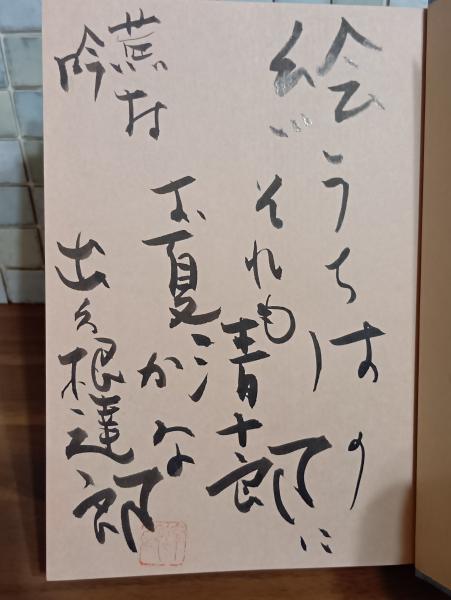 絵うちはの
それも清十郎に
お夏かな
蕪村
吟
出久根達郎